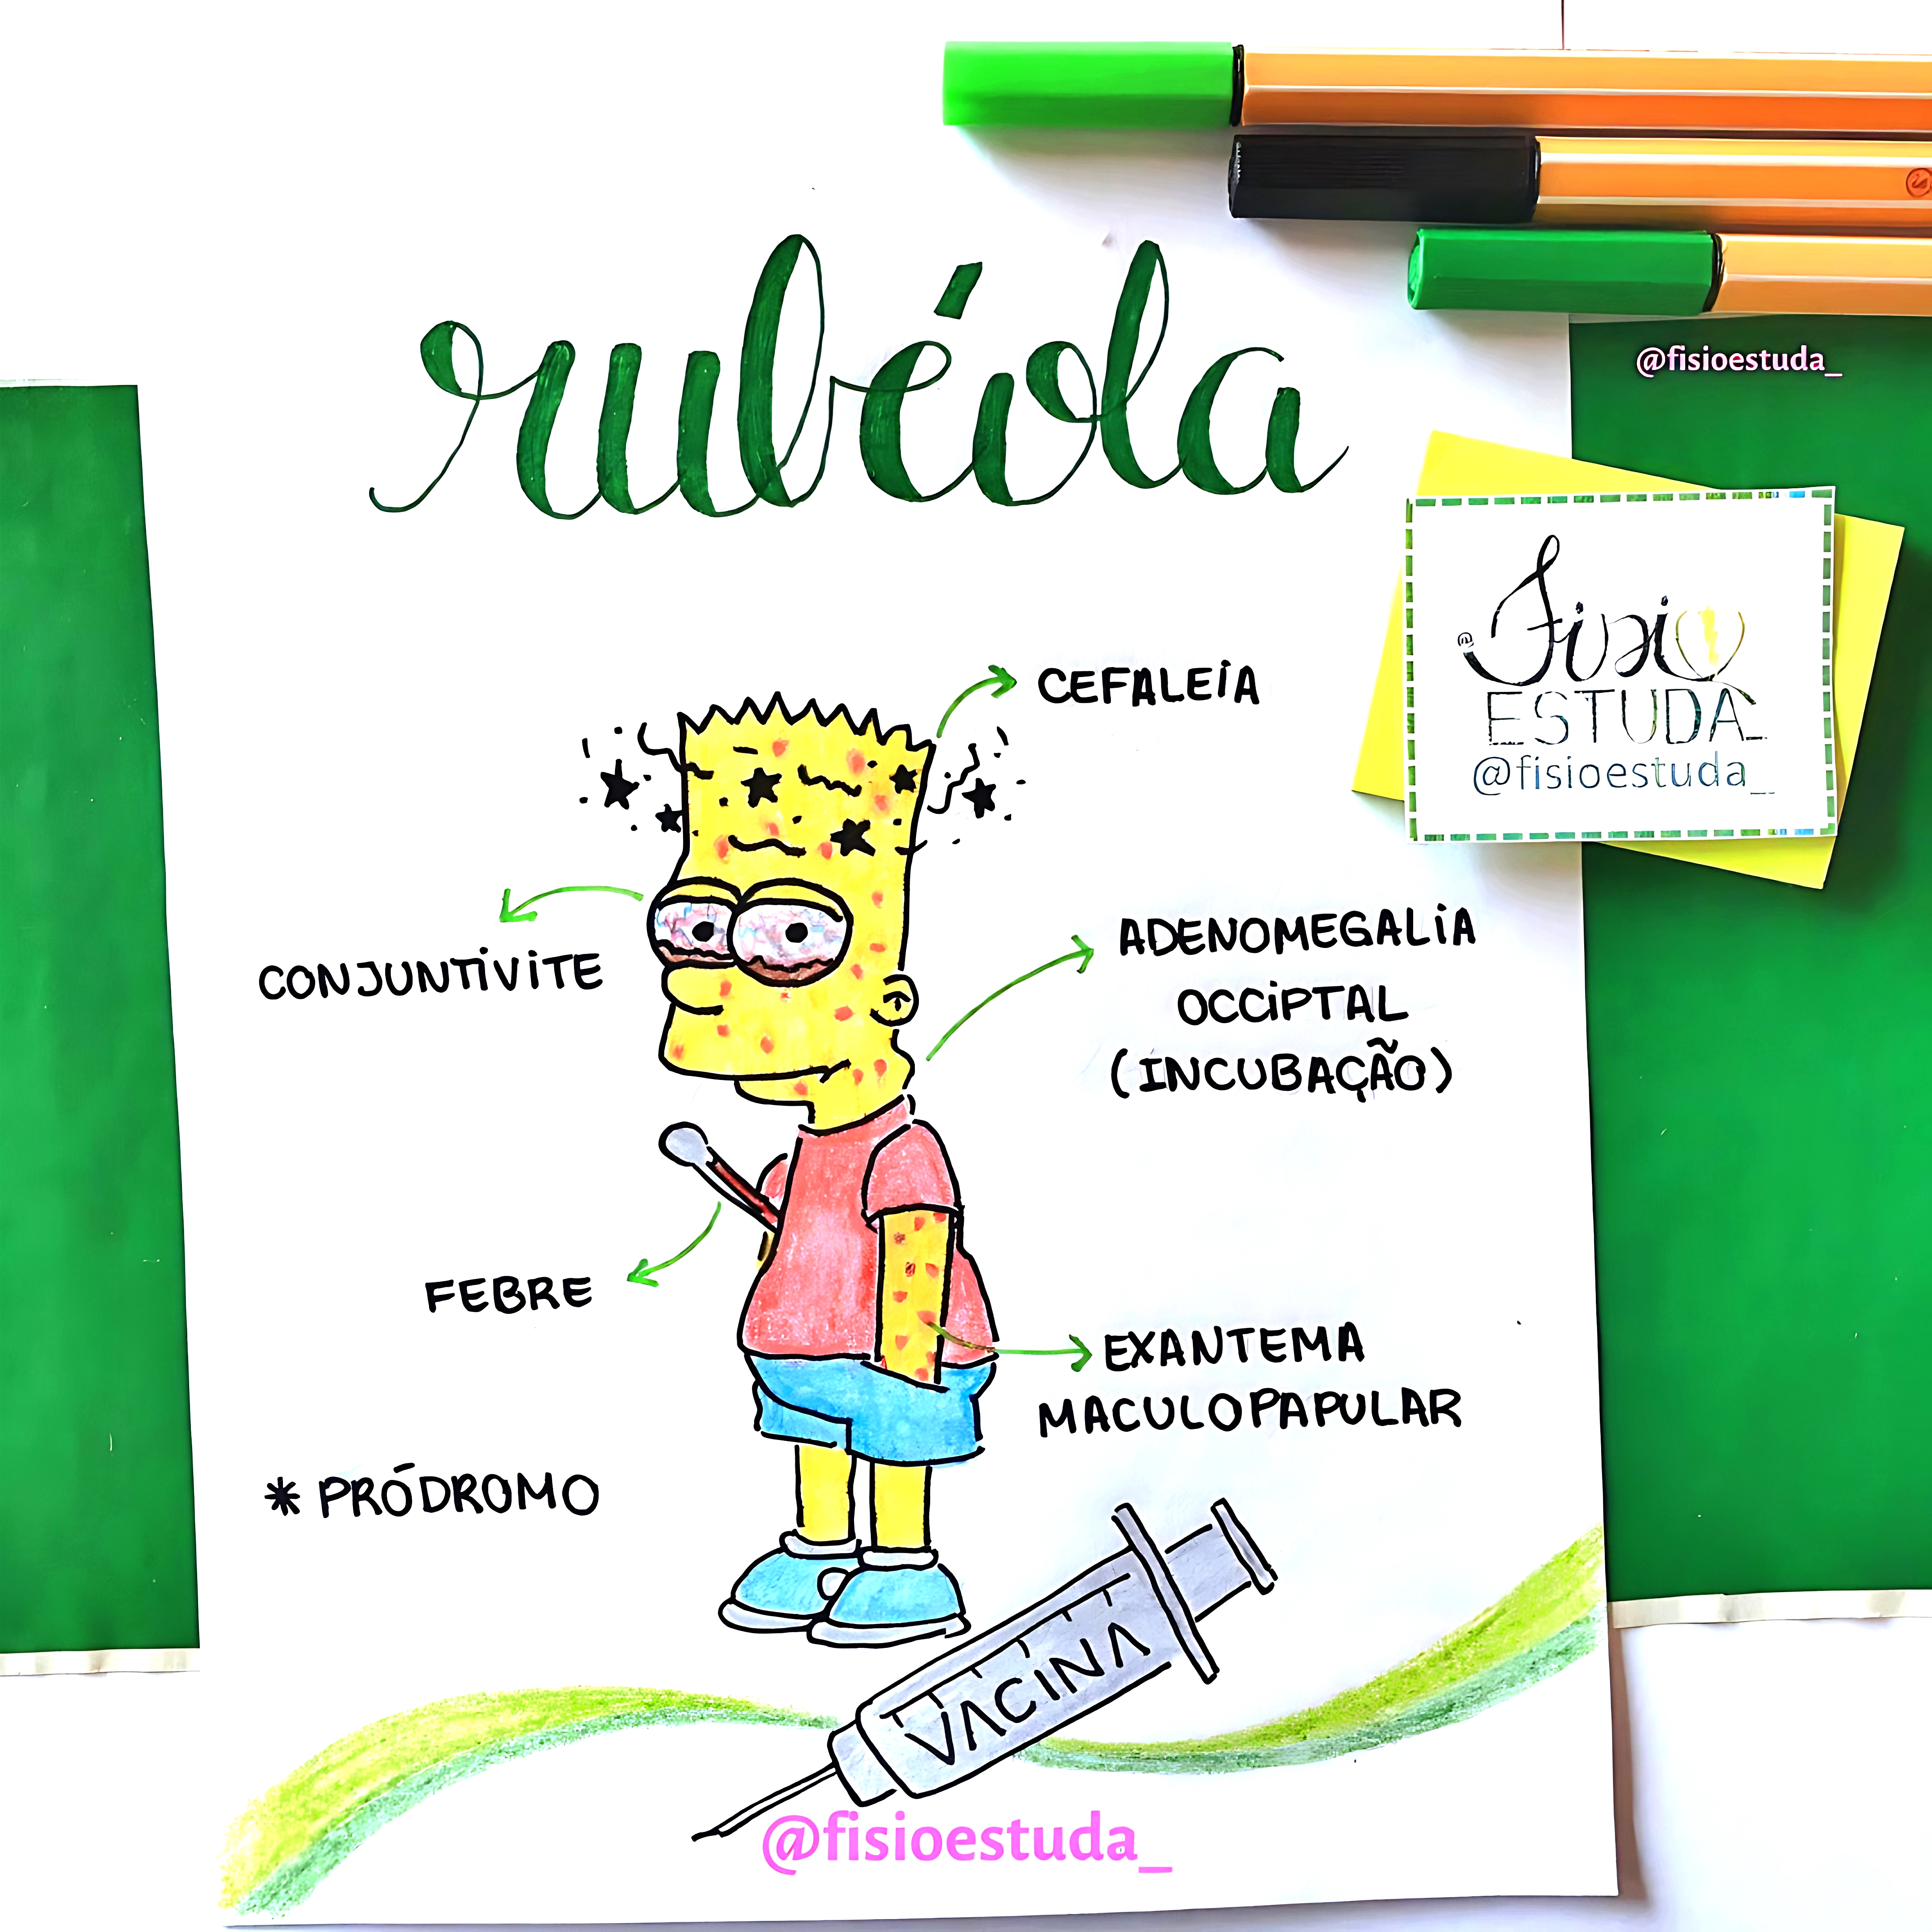 rubéola
@fisioestuda_
@Fisio
ESTUDA_
@fisioestuda_
CEFALEiA
CONJUNTiViTE
ADENOMEGALiA
OCCiPTAL
(INCUBAÇÃO)
FEBRE
EXANTEMA
MACULOPAPULAR
* PRÓDROMO
VACINA
@fisioestuda_